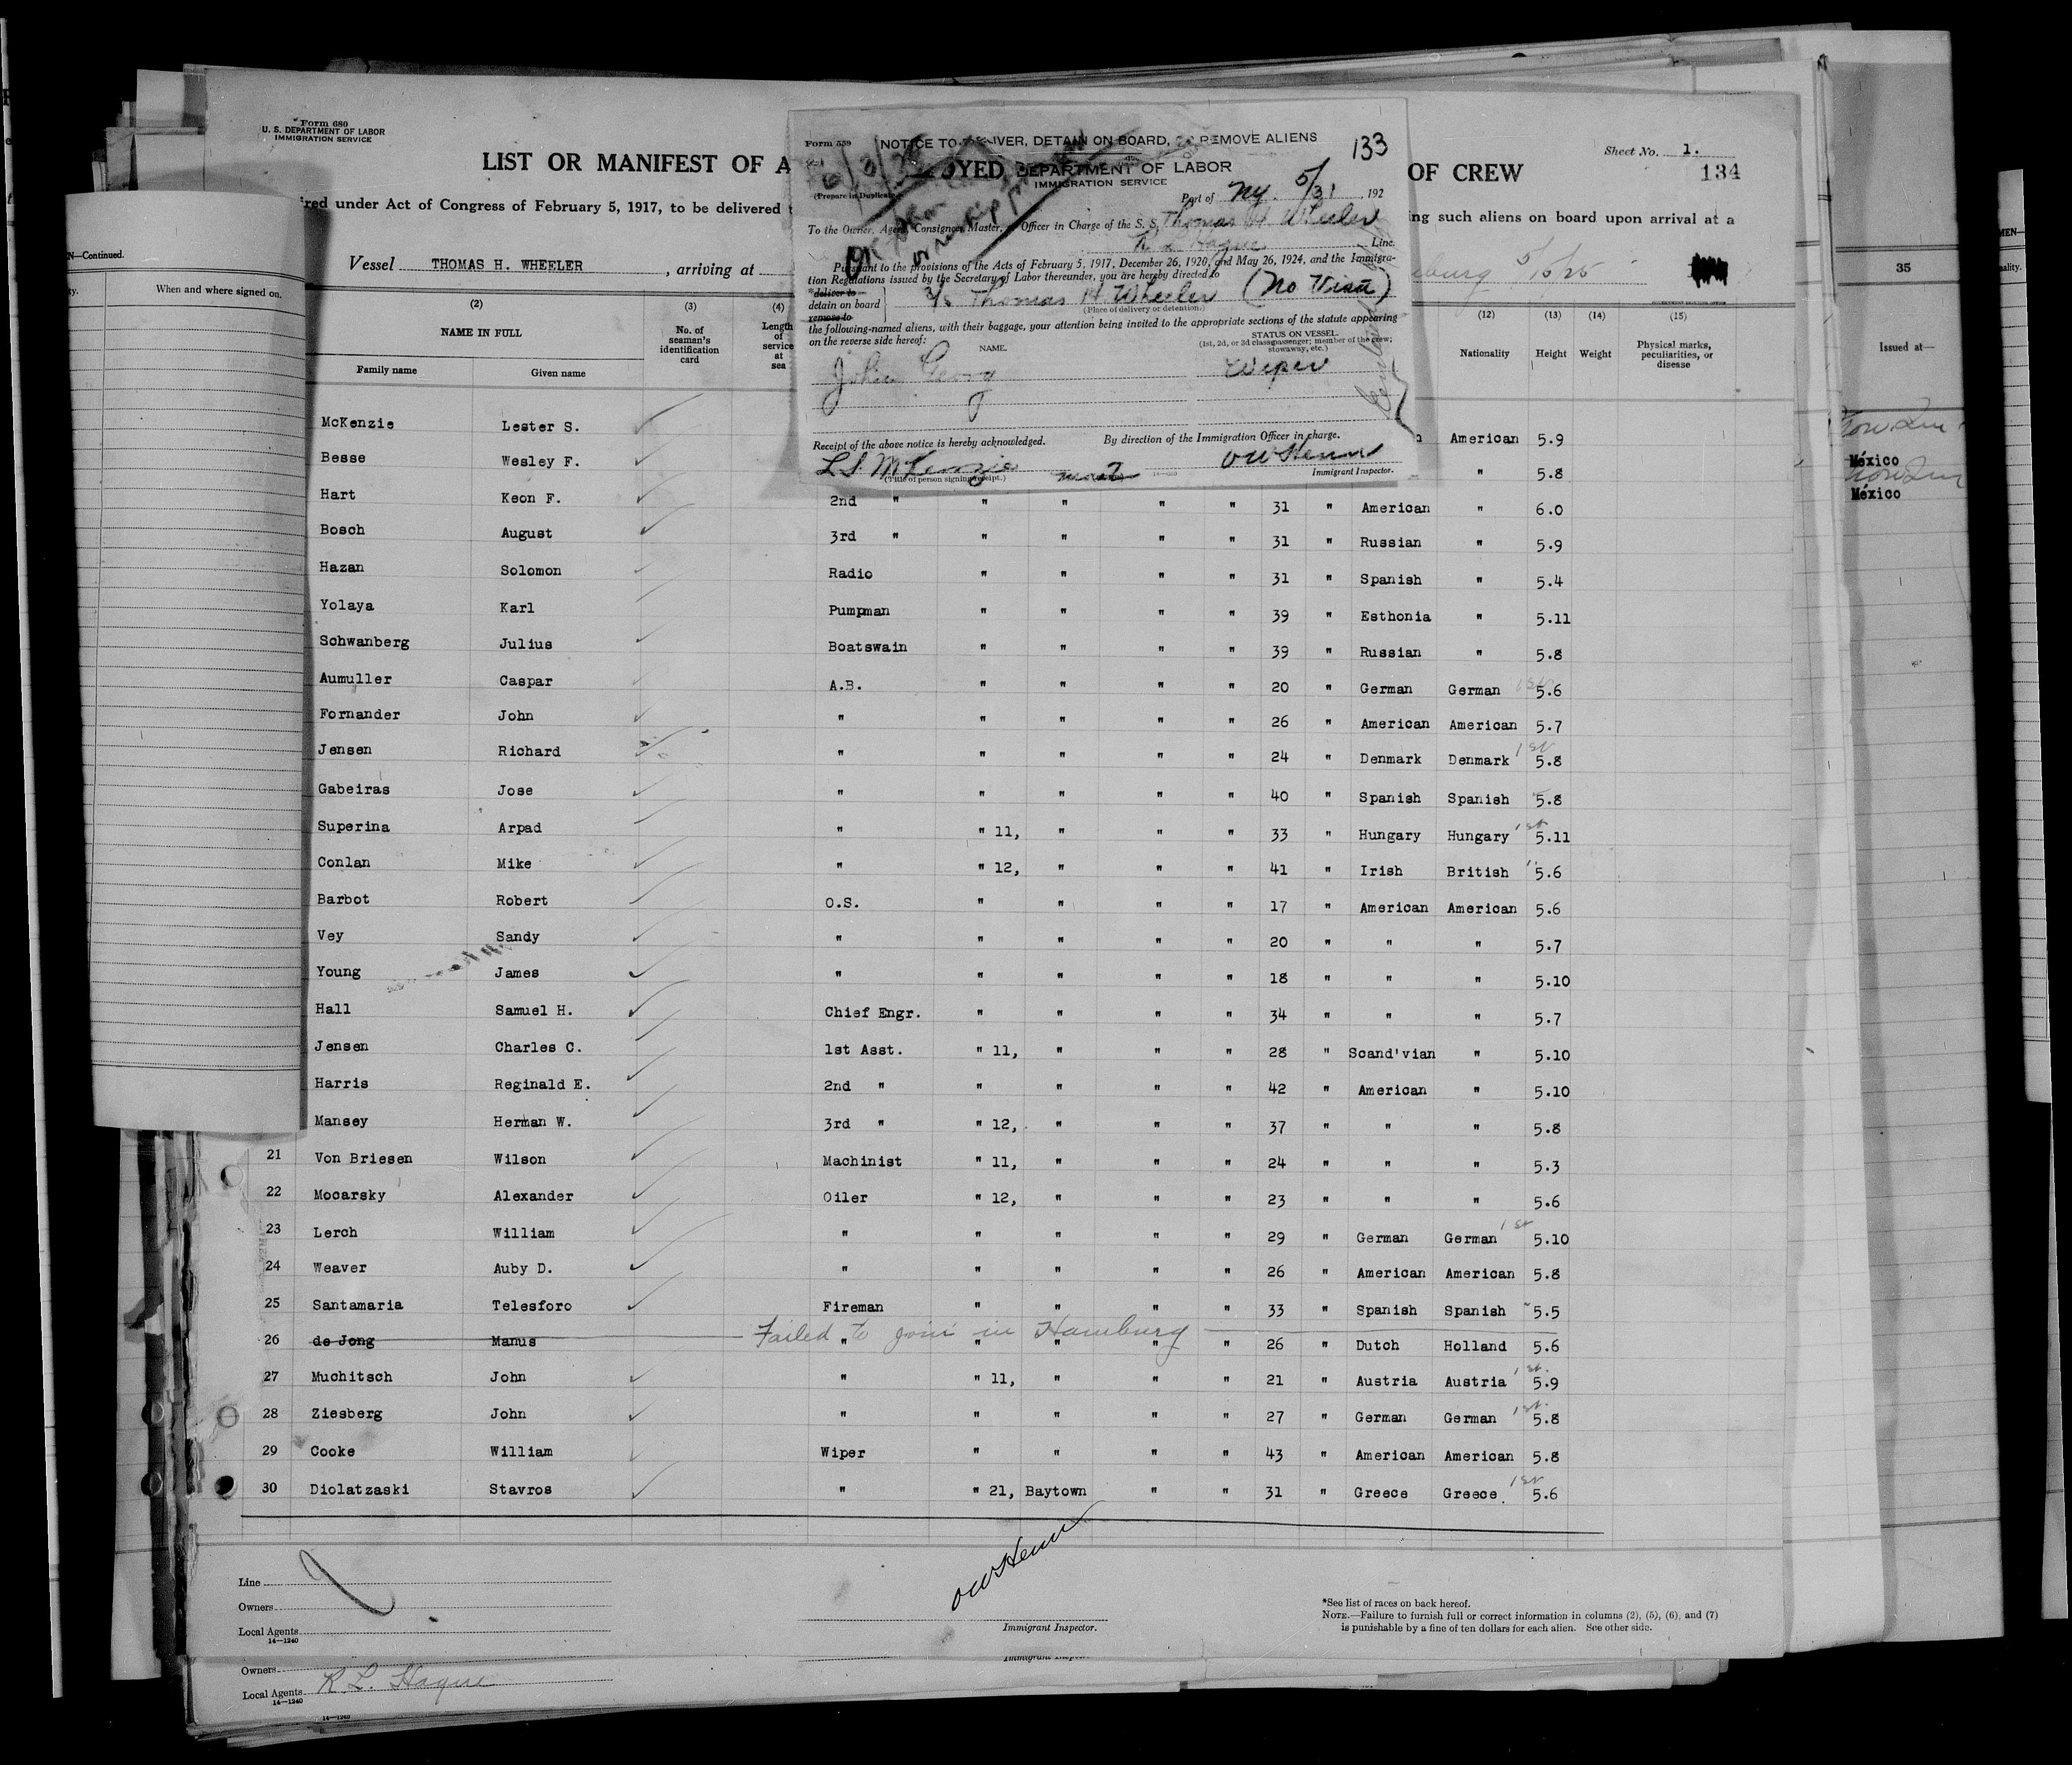 Form 680
U. S. DEPARTMENT OF LABOR
IMMIGRATION SERVICE
LIST OR MANIFEST OF A
OYED
OF CREW
Sheet No. 1.
134
red under Act of Congress of February 5, 1917, to be delivered t
ng such aliens on board upon arrival at a
Vessel THOMAS H. WHEELER , arriving at
Form 559
NOTICE TO DELIVER, DETAIN ON BOARD, OR REMOVE ALIENS
133
DEPARTMENT OF LABOR
IMMIGRATION SERVICE
(Prepare in Duplicate)
Port of N.Y. 5/31, 192
To the Owner, Agent, Consignee, Master, or Officer in Charge of the S. S. Thomas H Wheeler
R L Hague Line.
Pursuant to the provisions of the Acts of February 5, 1917, December 26, 1920, and May 26, 1924, and the Immigra-
tion Regulations issued by the Secretary of Labor thereunder, you are hereby directed to
*deliver to
detain on board
remove to
S/S Thomas H. Wheeler (No Visa)
(Place of delivery or detention.)
the following-named aliens, with their baggage, your attention being invited to the appropriate sections of the statute appearing
on the reverse side hereof:
NAME.
STATUS ON VESSEL.
(1st, 2d, or 3d class passenger; member of the crew;
stowaway, etc.)
John Georg
Wiper
Receipt of the above notice is hereby acknowledged.
By direction of the Immigration Officer in charge.
L S McKenzie
(Title of person signing receipt.)
Immigrant Inspector.
N—Continued.
When and where signed on.
(2)
NAME IN FULL
Family name
Given name
(3)
No. of
seaman's
identification
card
(4)
Length
of
service
at
sea
(12)
Nationality
(13)
Height
(14)
Weight
(15)
Physical marks,
peculiarities, or
disease
35
Issued at—
México
México
McKenzie Lester S. American 5.9
Besse Wesley F. " 5.8
Hart Keon F. 2nd " " " " " 31 " American " 6.0
Bosch August 3rd " " " " " 31 " Russian " 5.9
Hazan Solomon Radio " " " " 31 " Spanish " 5.4
Yolaya Karl Pumpman " " " " 39 " Esthonia " 5.11
Schwanberg Julius Boatswain " " " " 39 " Russian " 5.8
Aumuller Caspar A.B. " " " " 20 " German German 5.6
Fornander John " " " " " 26 " American American 5.7
Jensen Richard " " " " " 24 " Denmark Denmark 1st 5.8
Gabeiras Jose " " " " " 40 " Spanish Spanish 5.8
Superina Arpad " " 11, " " " 33 " Hungary Hungary 1st 5.11
Conlan Mike " " 12, " " " 41 " Irish British 5.6
Barbot Robert O.S. " " " " 17 " American American 5.6
Vey Sandy " " " " " 20 " " " 5.7
Young James " " " " " 18 " " " 5.10
Hall Samuel H. Chief Engr. " " " " 34 " " " 5.7
Jensen Charles C. 1st Asst. " 11, " " " 28 " Scand'vian " 5.10
Harris Reginald E. 2nd " " " " " 42 " American " 5.10
Mansey Herman W. 3rd " " 12, " " " 37 " " " 5.8
21 Von Briesen Wilson Machinist " 11, " " " 24 " " " 5.3
22 Mocarsky Alexander Oiler " 12, " " " 23 " " " 5.6
23 Lerch William " " " " " 29 " German German 1st 5.10
24 Weaver Auby D. " " " " " 26 " American American 5.8
25 Santamaria Telesforo Fireman " " " " 33 " Spanish Spanish 5.5
Failed to join in Hamburg
26 de Jong Manus " " " " " 26 " Dutch Holland 5.6
27 Muchitsch John " " 11, " " " 21 " Austria Austria 1st 5.9
28 Ziesberg John " " " " " 27 " German German 1st 5.8
29 Cooke William Wiper " " " " 43 " American American 5.8
30 Diolatzaski Stavros " " 21, Baytown " " 31 " Greece Greece. 1st 5.6
Line
Owners
Local Agents
14—1240
Immigrant Inspector.
*See list of races on back hereof.
NOTE.—Failure to furnish full or correct information in columns (2), (5), (6), and (7)
is punishable by a fine of ten dollars for each alien. See other side.
Owners
Local Agents R. L. Hague
14—1240
14—1240